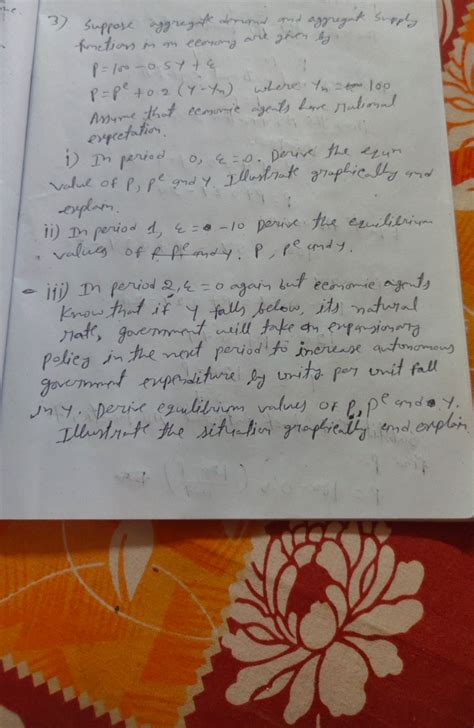 3) Suppose aggregate demand and aggregate supply
functions in an economy are given by
P = 100 - 0.5Y + ε
P = Pᵉ + 0.2 (Y - Yn) where Yn = 100
Assume that economic agents have rational
expectation.
i) In period 0, ε = 0. Derive the eqm
value of P, Pᵉ and Y. Illustrate graphically and
explain.
ii) In period 1, ε = -10 Derive the equilibrium
values of P, Pᵉ and Y.
iii) In period 2, ε = 0 again but economic agents
know that if Y falls below, its natural
rate, government will take an expansionary
policy in the next period to increase autonomous
government expenditure by unity per unit fall
in Y. Derive equilibrium values of P, Pᵉ and Y.
Illustrate the situation graphically and explain